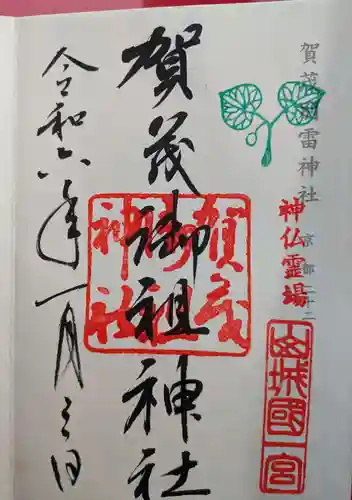 賀茂別雷神社 京都二十二
神仏霊場
山城國一宮
賀茂御祖神社
賀茂御祖神社
令和六年一月三日